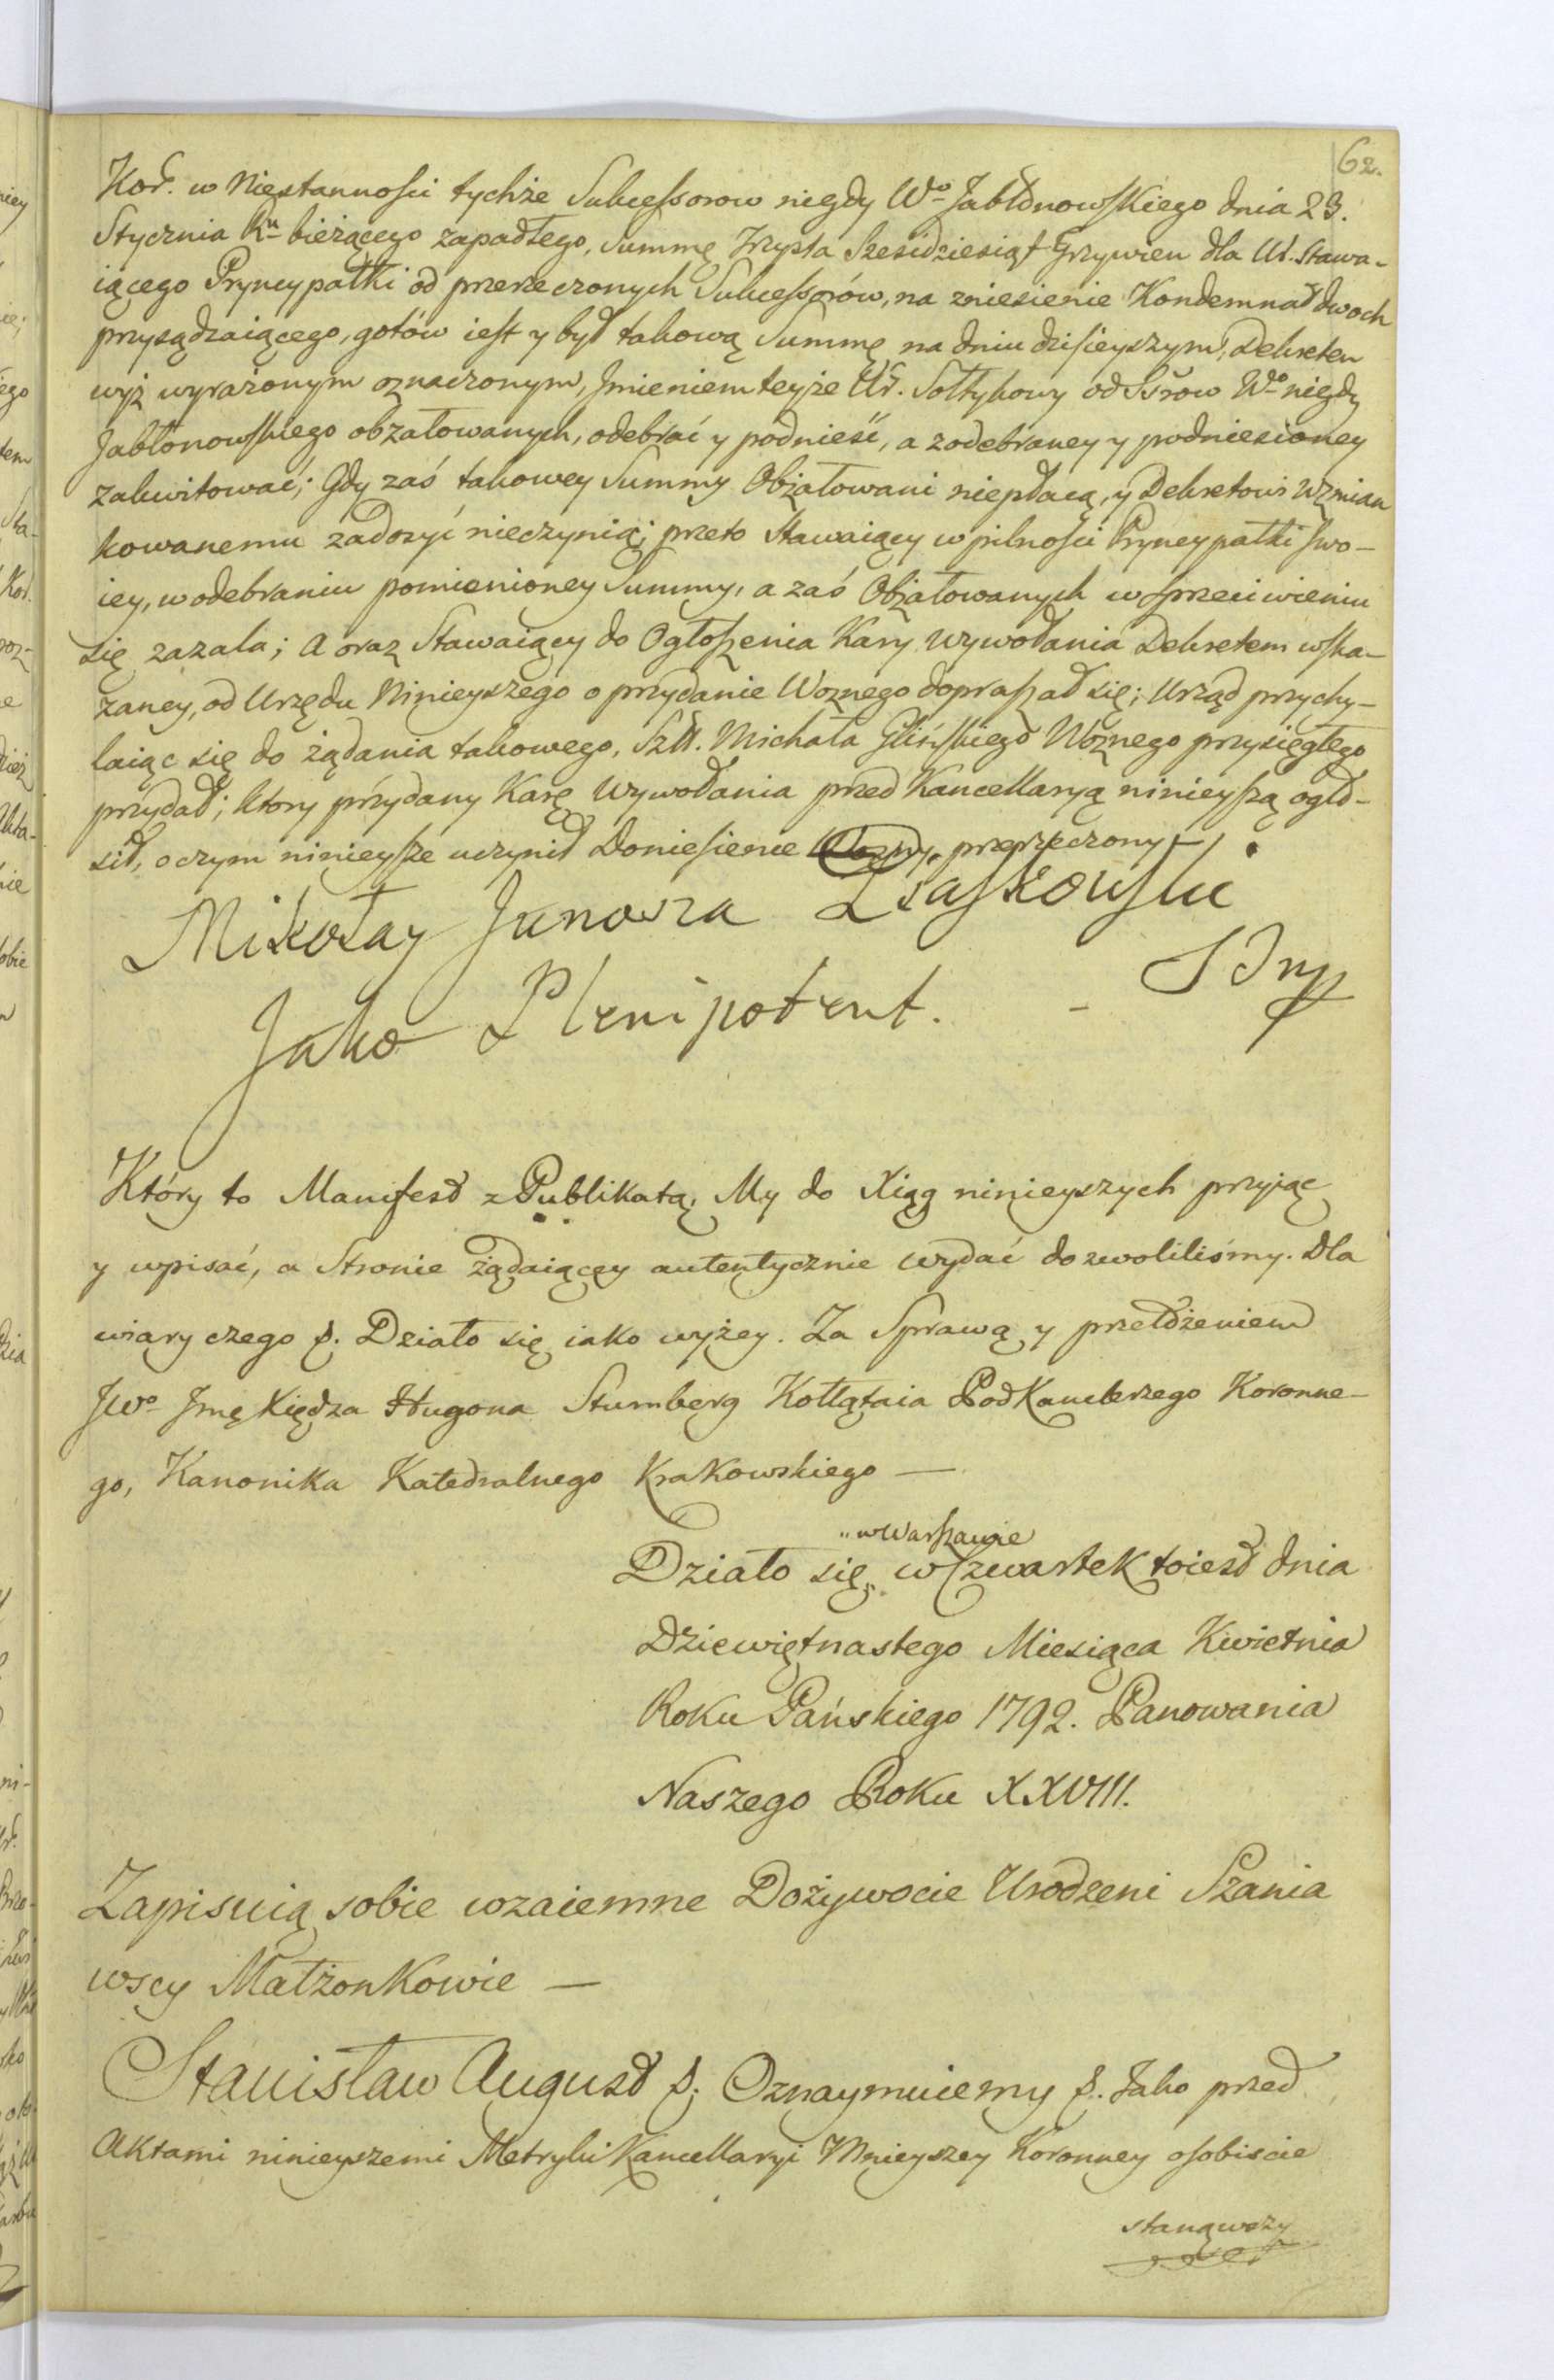 62.
Kor. w Niestannosci tychże Sukcessorow niegdy Wo Jabłonowskiego dnia 23.
Stycznia Ru bieżącego zapadłego, Summę Trzysta Szesidziesiąt Grzywien dla Ur. Stawa-
iącego Pryncypałki od przerzeczonych Sukcessorów, na zniesienie Kondemnat dwoch
przysądzaiącego, gotów iest y był takową Summę na dniu dzisieyszym, Dekretem
wyż wyrażonym oznaczonym, Jmieniem teyże Ur. Sołtykowy od Ssrow Wo niegdy
Jabłonowskiego obżałowanych, odebrać y podnieść, a z odebraney y podniesioney
zakwitować; Gdy zaś takowey Summy Obżałowani niepłacą, y Dekretowi wzmian
kowanemu zadosyć nieczynią; przeto Stawaiący w pilnosci Pryncypałki swo-
iey, w odebraniu pomienioney Summy, a zaś Obżałowanych w sprzeciwieniu
się zazala; a oraz Stawaiący do Ogłoszenia Kary wywołania Dekretem wska-
zaney, od Urzędu Ninieyszego o przydanie Woznego dopraszał się; Urząd przychy-
laiąc się do żądania takowego, Szl. Michała Glińskiego Woznego przysięgłego
przydał; ktory przydany Karę wywołania przed Kancellaryą ninieyszą ogło-
sił, o czym ninieysze uczynił Doniesienie Wozny przerzeczony
Mikołay Junosza Piaskowski
Jako Plenipotent. -
Który to Manifest z Publikatą, My do Xiąg ninieyszych przyjąc
y wpisać, a Stronie żądaiącey autentycznie wydać dozwoliliśmy. Dla
wiary czego &. Działo się iako wyżey. Za Sprawą y przełożeniem
JWo Jmę Xiędza Hugona Stumberg Kołłątaia Podkanclerzego Koronne-
go, Kanonika Katedralnego Krakowskiego —
" w Warszawie
Działo się " w Czwartek toiest dnia
Dziewiętnastego Miesiąca Kwietnia
Roku Pańskiego 1792. Panowania
Naszego Roku XXVIII.
Zapisuią sobie wzaiemne Dożywocie Urodzeni Szania
wscy Małżonkowie —
Stanisław August &. Oznaymuiemy &. Jako przed
Aktami ninieyszemi Metryki Kancellaryi Mnieyszey Koronney osobiscie
stanąwszy